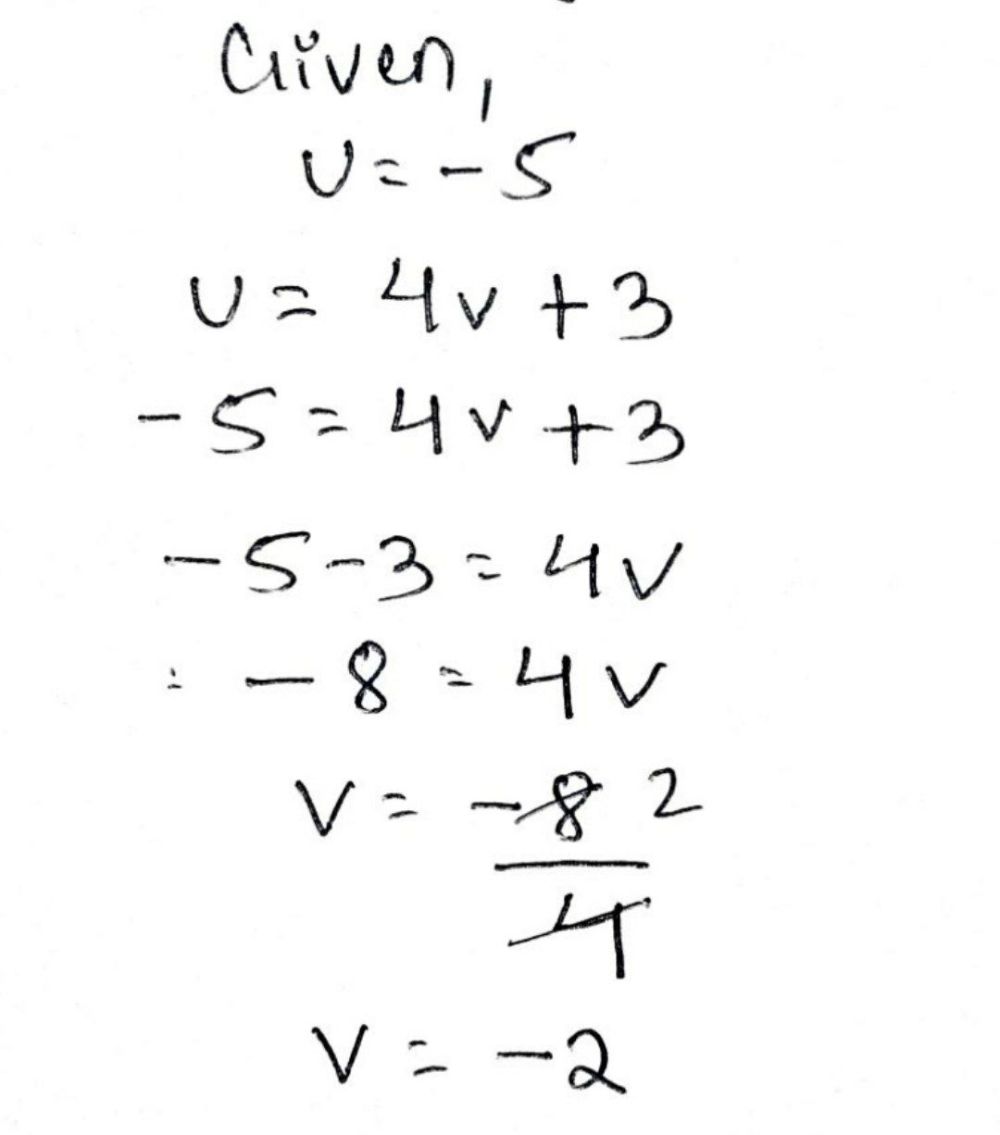 Given,
U = -5
U = 4v + 3
-5 = 4v + 3
-5 - 3 = 4v
= -8 = 4v
V = -8 2
4
V = -2